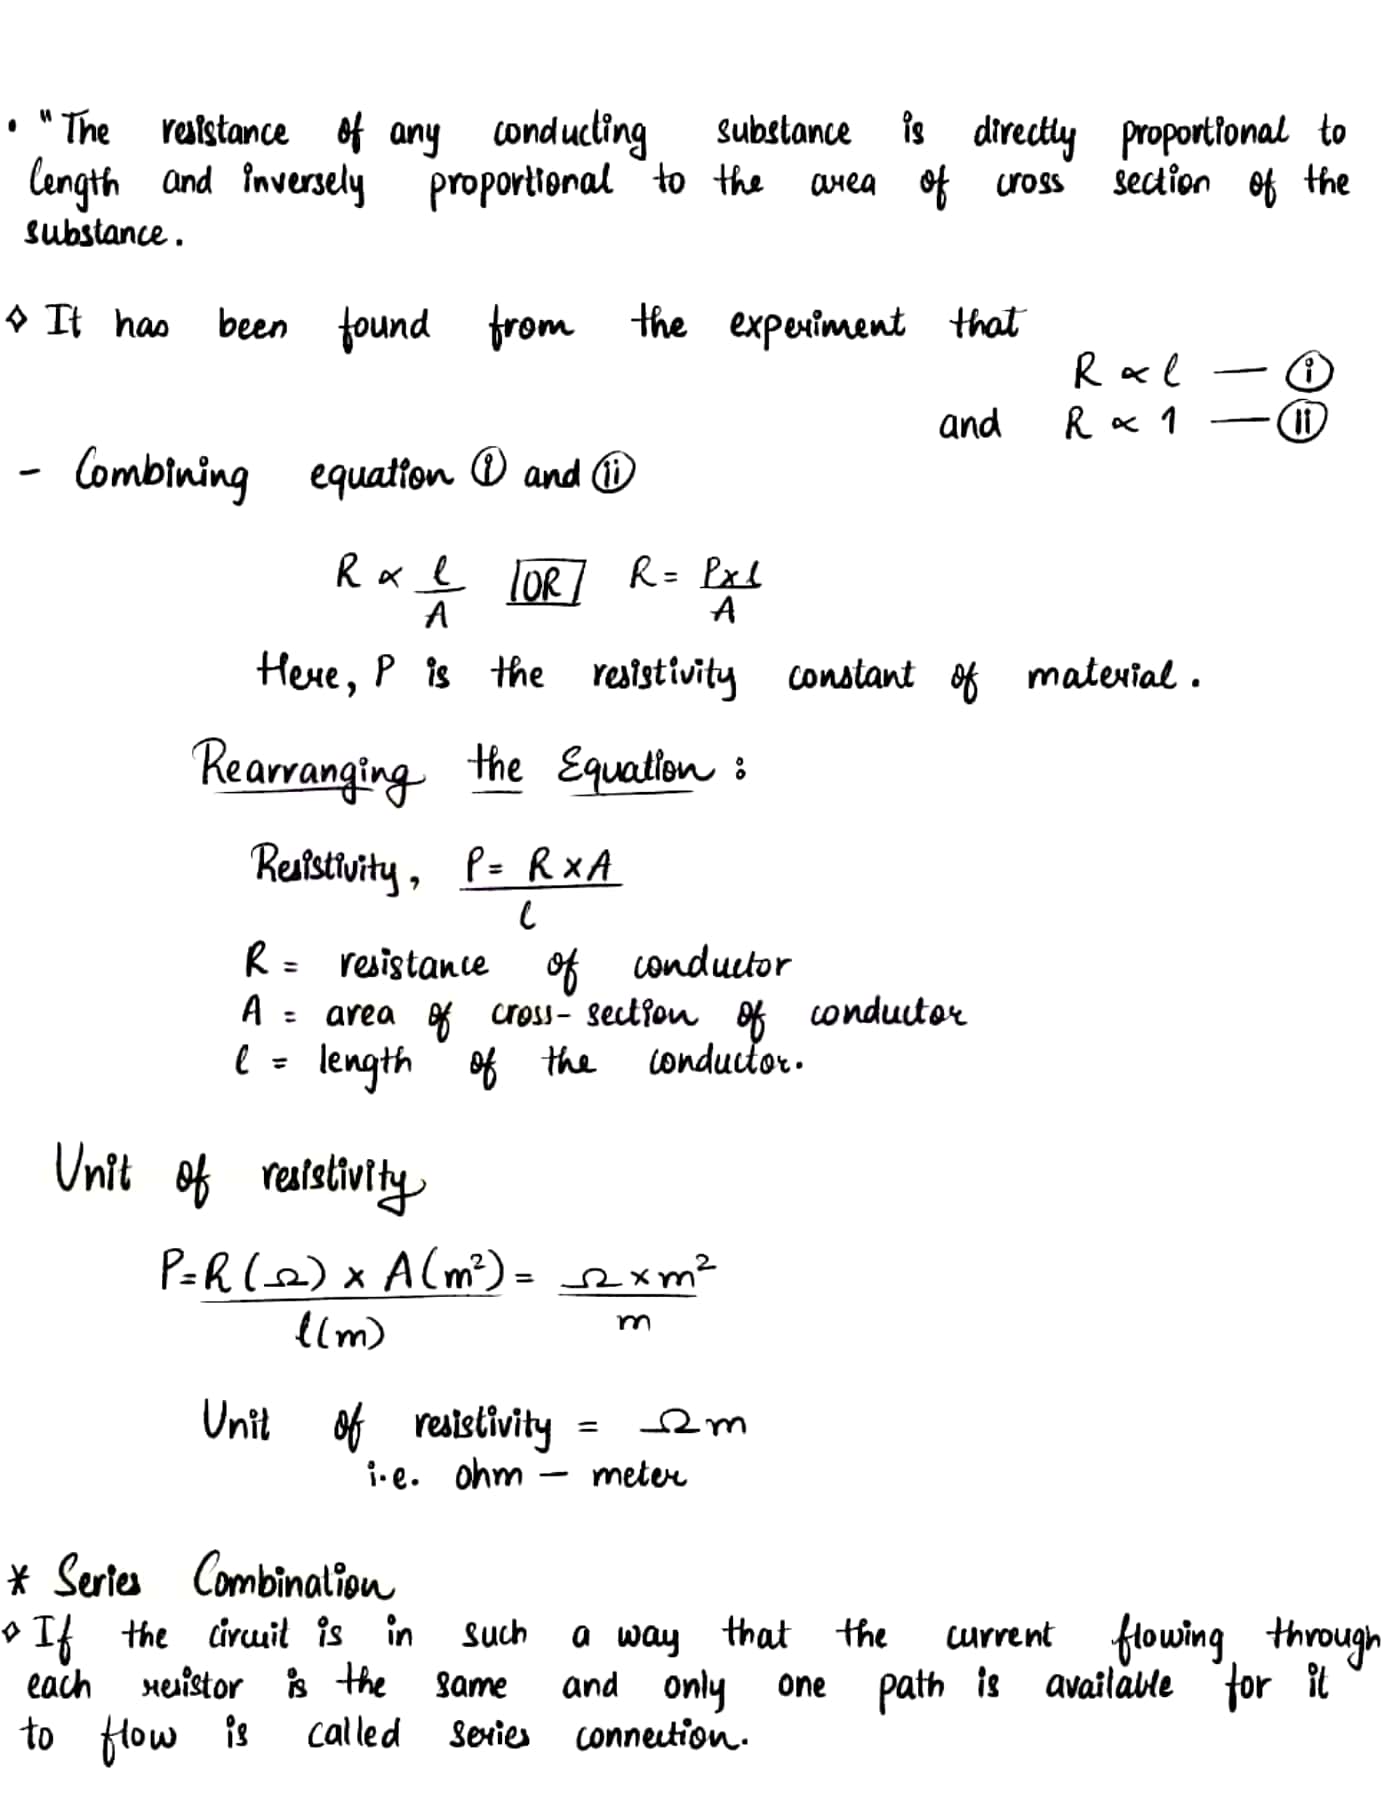 • "The resistance of any conducting substance is directly proportional to
length and inversely proportional to the area of cross section of the
substance.
◇ It has been found from the experiment that
R ∝ l — (i)
and R ∝ 1 — (ii)
- Combining equation (i) and (ii)
R ∝ l/A [OR] R = P×l/A
Here, P is the resistivity constant of material.
Rearranging the Equation :
Resistivity, P = R×A/l
R = resistance of conductor
A = area of cross-section of conductor
l = length of the conductor.
Unit of resistivity
P=R(Ω) × A(m²)/l(m) = Ω×m²/m
Unit of resistivity = Ωm
i.e. ohm – meter
* Series Combination
◇ If the circuit is in such a way that the current flowing through
each resistor is the same and only one path is available for it
to flow is called series connection.